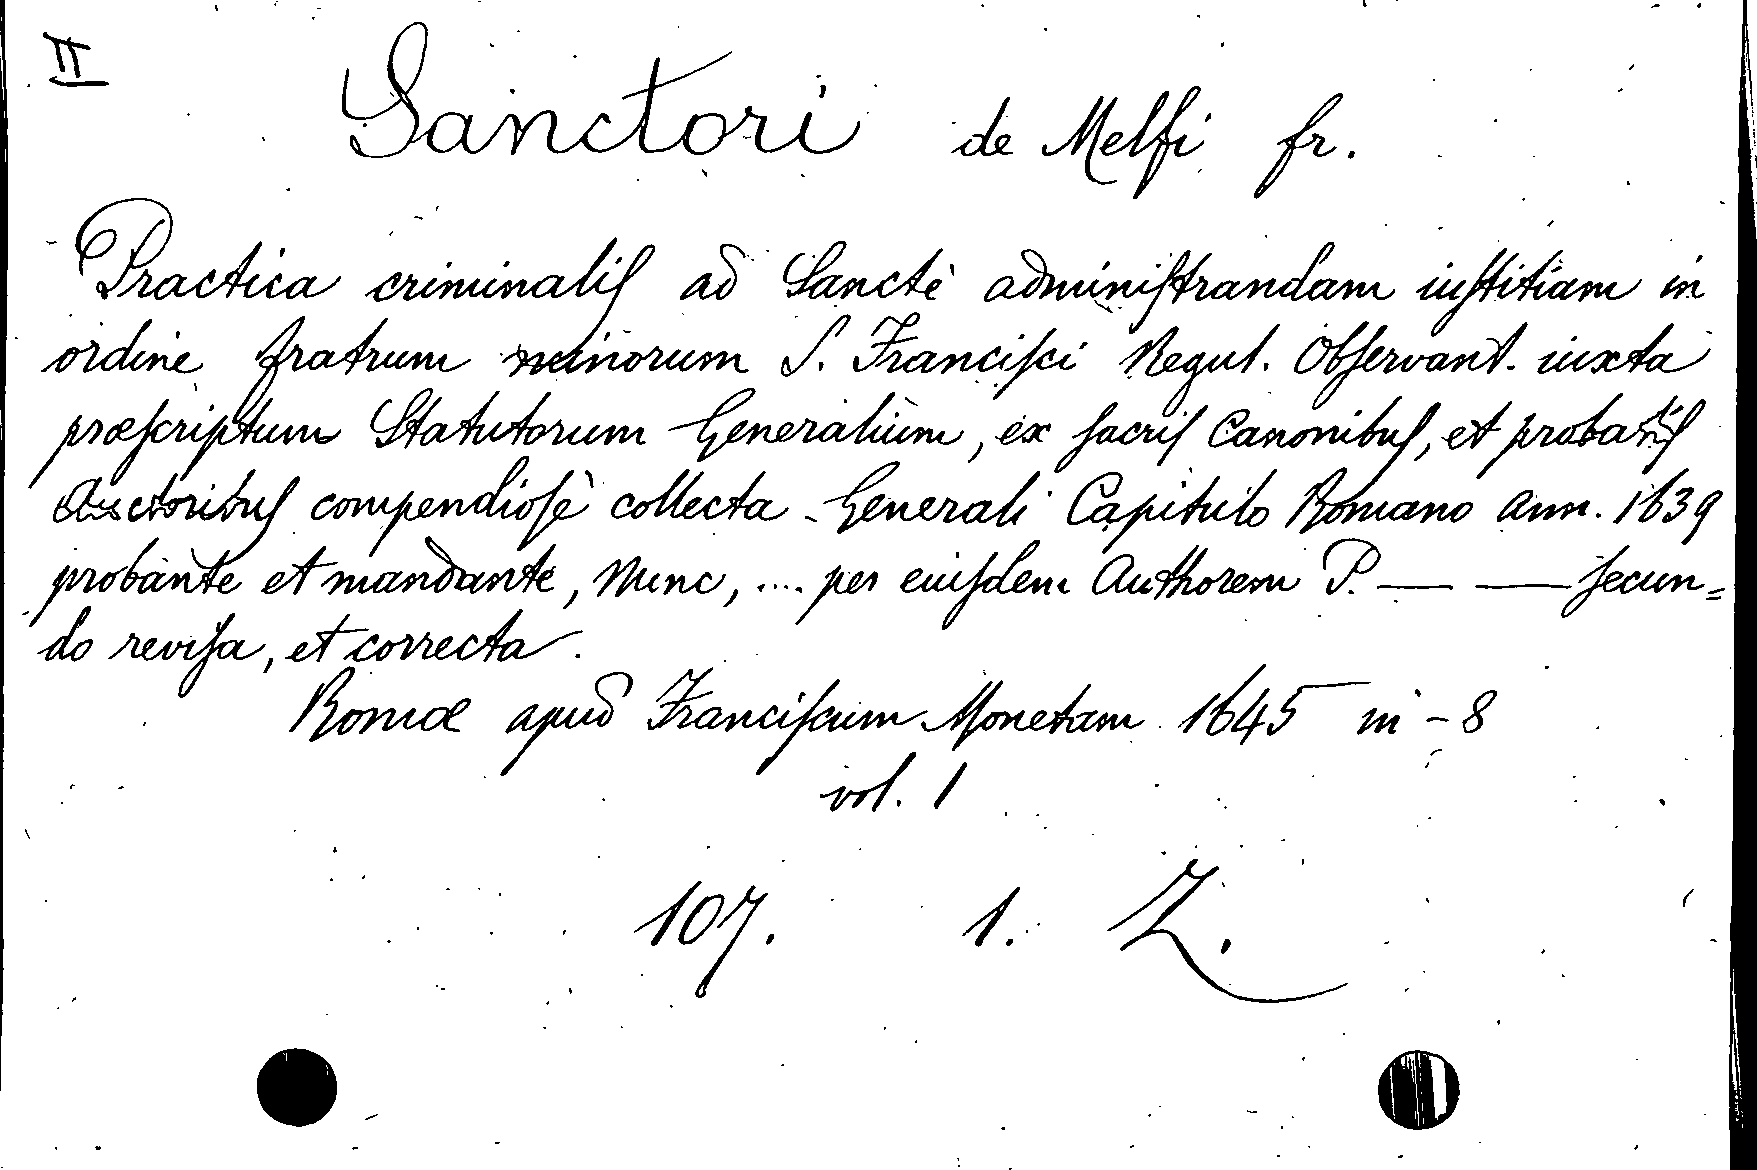 II
Sanctori de Melfi fr.
Practica criminaliſ ad Sanctè adminiſtrandam iuſtitiam in
ordine fratrum minorum S. Franciſci Regul. Obſervant. iuxta
præſcriptum Statutorum Generalium, ex ſacriſ Canonibuſ, et probatiſ
Auctoribuſ compendioſè collecta Generali Capitulo Romano ann. 1639
probante et mandante, Nunc, .... per eiuſdem Authorem P. — — ſecun=
do reviſa, et correcta.
Romæ apud Franciſcum Monetam 1645 in-8
vol. 1
107. 1. Z.